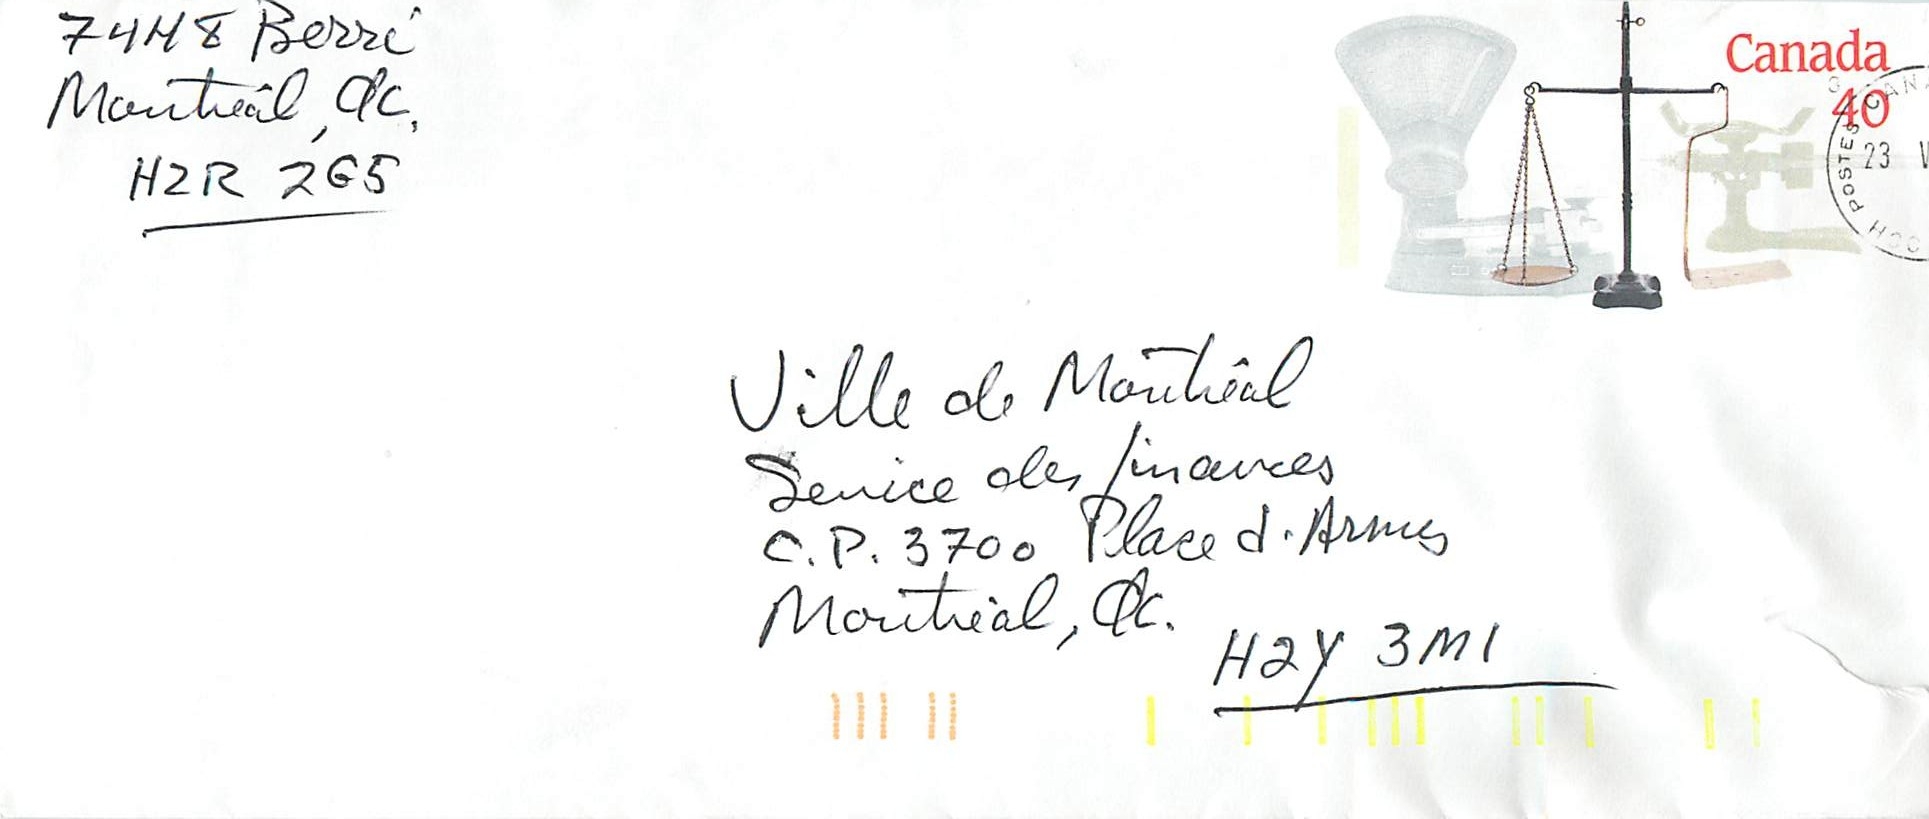 7448 Berri
Montréal, Qc.
H2R 2G5
Canada
40
POSTES CANA
23 V
Ville de Montréal
Service des finances
C.P. 3700 Place d'Armes
Montréal, Qc.
H2Y 3M1